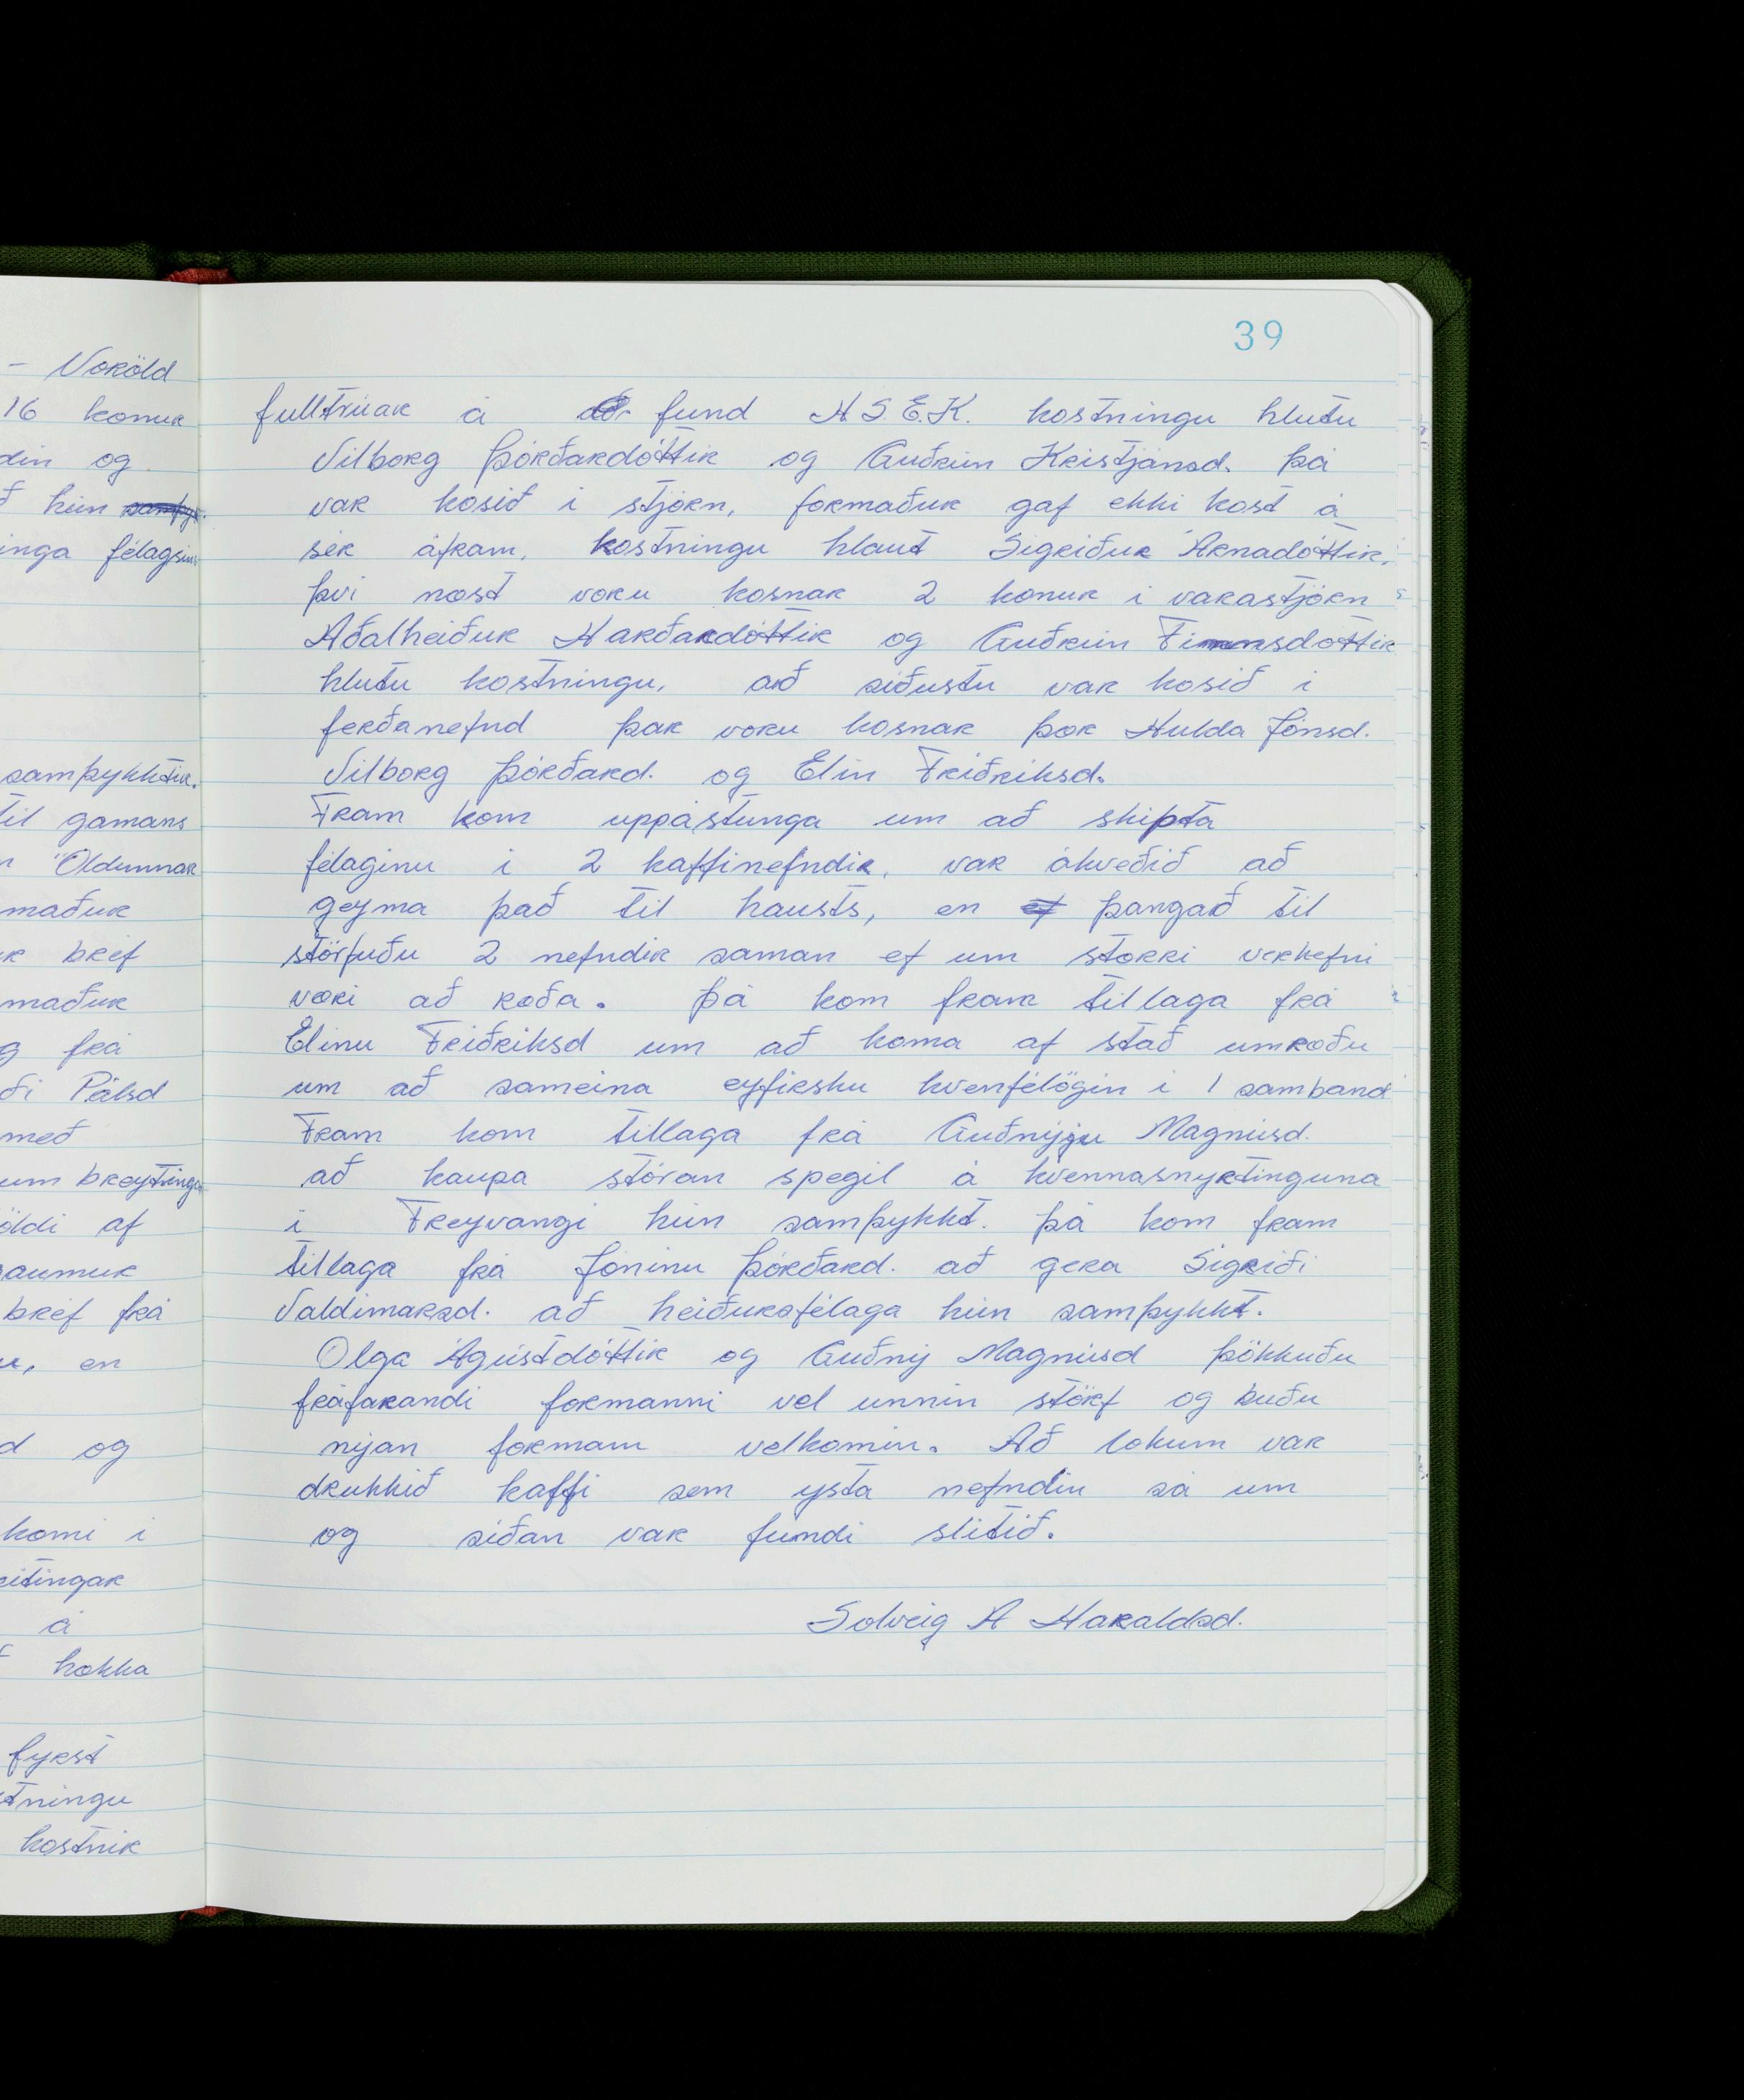 - Voröld
16 konur
din og
ð hún samþy
inga félagsins
samþykktir.
til gamans
n Öldunnar
maður
ur bréf
maður
g frá
ði Pálsd
með
um breytinga
öldi af
saumur
bréf frá
u, en
d og
komi i
eitingar
á
hækka
fyrst
stningu
kostnir
39
fulltrúar á fund H.S.E.K. kostningu hlutu
Vilborg Þórðardóttir og Guðrún Kristjánsd. þá
var kosið i stjórn, formaður gaf ekki kost á
sér áfram, kostningu hlaut Sigríður Árnadóttir,
því næst voru kosnar 2 konur i varastjórn
Aðalheiður Harðardóttir og Guðrún Finnsdóttir
hlutu kostningu, að síðustu var kosið i
ferðanefnd þar voru kosnar þær Hulda Jónsd.
Vilborg Þórðard. og Elín Friðriksd.
Fram kom uppástunga um að skipta
félaginu i 2 kaffinefndir, var ákveðið að
geyma það til hausts, en ef þangað til
störfuðu 2 nefndir saman ef um stærri verkefni
væri að ræða. Þá kom fram tillaga frá
Elínu Friðriksd um að koma af stað umræðu
um að sameina eyfirsku kvenfélögin i 1 samband
Fram kom tillaga frá Guðnýju Magnúsd.
að kaupa stóran spegil á kvennasnyrtinguna
i Freyvangi hún samþykkt. þá kom fram
tillaga frá Jónínu Þórðard. að gera Sigríði
Valdimarsd. að heiðursfélaga hún samþykkt.
Olga Ágústdóttir og Guðný Magnúsd þökkuðu
fráfarandi formanni vel unnin störf og buðu
nýjan formann velkomin. Að lokum var
drukkið kaffi sem ysta nefndin sá um
og síðan var fundi slitið.
Solveig A Haraldsd.